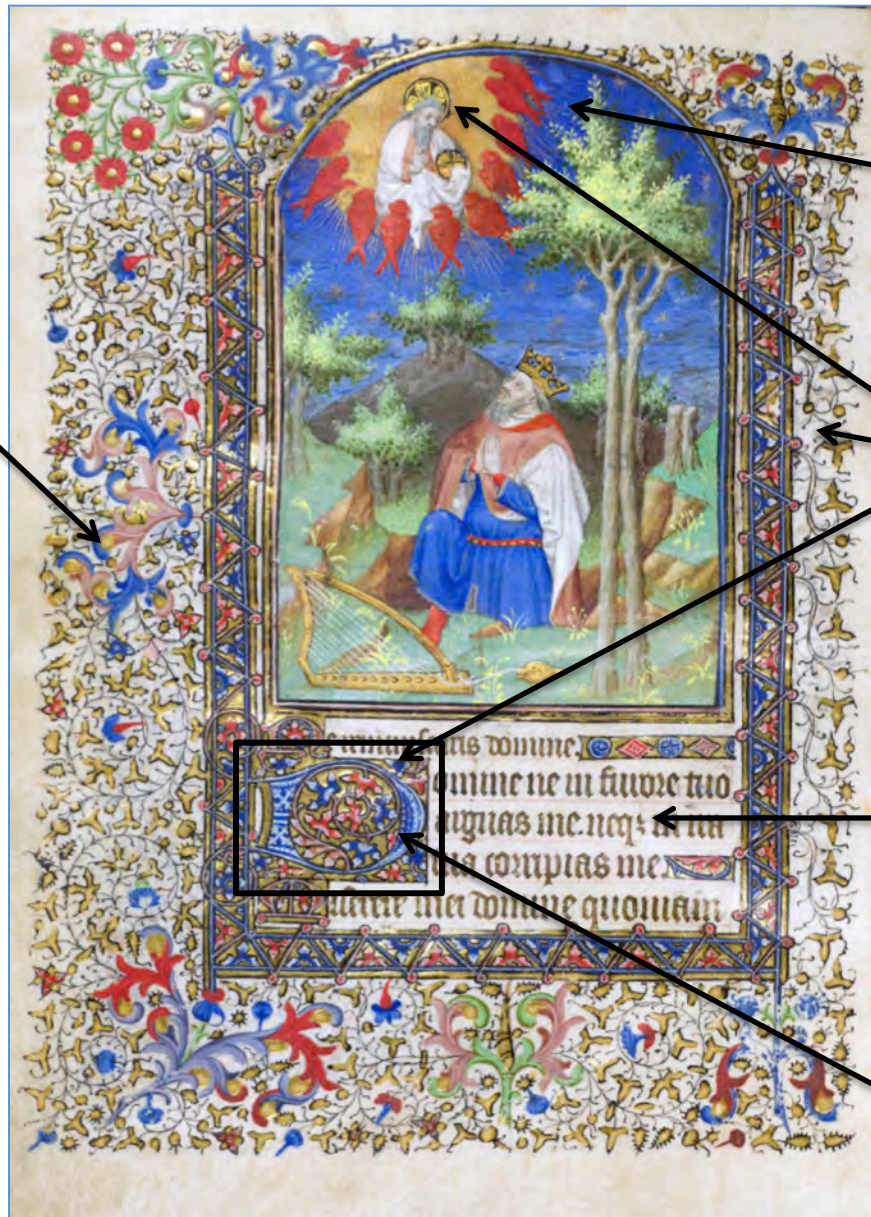 Ne reminiscaris domine.
Domine ne in furore tuo
arguas me. neqꝫ in ira
tua corripias me
Miserere mei domine quoniam